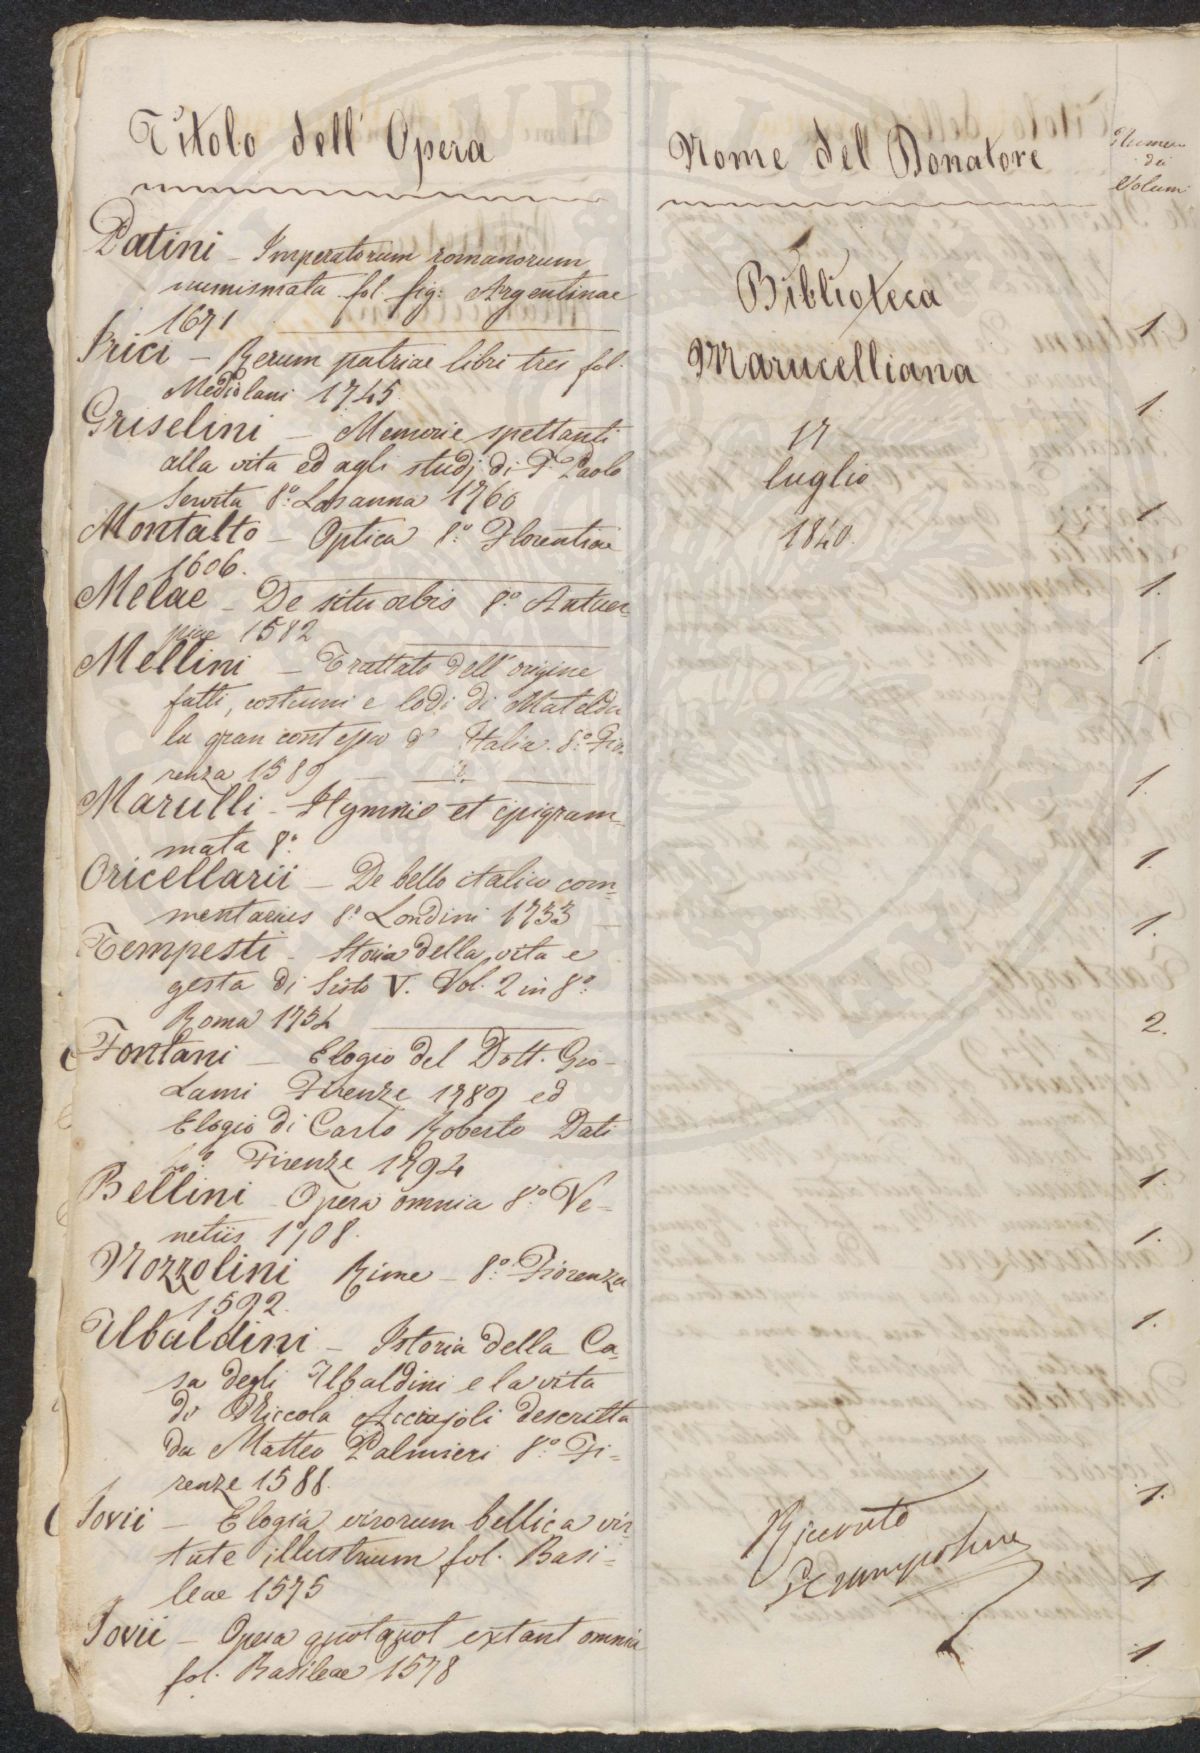 Titolo dell' Opera
Patini – Imperatorum romanorum
numismata fol. fig: Argentinae
1671
Irici – Rerum patriae libri tres fol.
Mediolani 1745.
Griselini – Memorie spettanti
alla vita ed agli studj di F. Paolo
Servita 8.º Losanna 1760
Montalto – Optica 8.º Florentiae
1606.
Melae – De situ orbis 8.º Antuer=
piae 1582
Mellini – Trattato dell' origine
fatti, costumi e lodi di Matelda
la gran contessa d' Italia. 8.º Fio=
renza 1589
Marulli – Hymni et epigram=
mata 8.º
Oricellarii – De bello italico com=
mentarius 8.º Londini 1733
Tempesti – Storia della vita e
gesta di Sisto V. Vol. 2 in 8.º
Roma 1754
Fontani – Elogio del Dott. Gio–
Lami Firenze 1789 ed
Elogio di Carlo Roberto Dati
Firenze 1794
Bellini – Opera omnia 8.º Ve=
netiis 1708.
Nozzolini Rime – 8.º Fiorenza
1592.
Ubaldini – Istoria della Ca=
sa degli Ubaldini e la vita
di Niccola Acciajoli descritta
da Matteo Palmieri 8.º Fi=
renze 1588.
Jovii – Elogia virorum bellica vir=
tute illustrium fol. Basi=
leae 1575
Jovii – Opera quotquot extant omnia
fol. Basileae 1578
Nome del Donatore
Biblioteca
Marucelliana
17
luglio
1840.
Ricevuto
Numero
dei
Volumi
1.
1.
1.
1.
1.
1.
1.
1.
2.
1.
1.
1.
1.
1
1